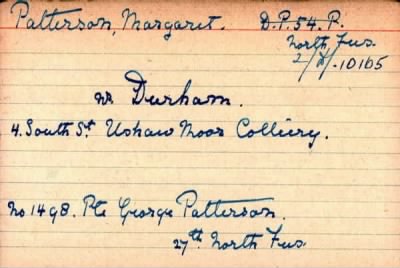 Patterson, Margaret. D.P. 54. P.
North, Fus.
2/N/-10165
nr Durham.
4. South St Ushaw Moor Colliery.
No 1498. Pte George Patterson.
27th North Fus